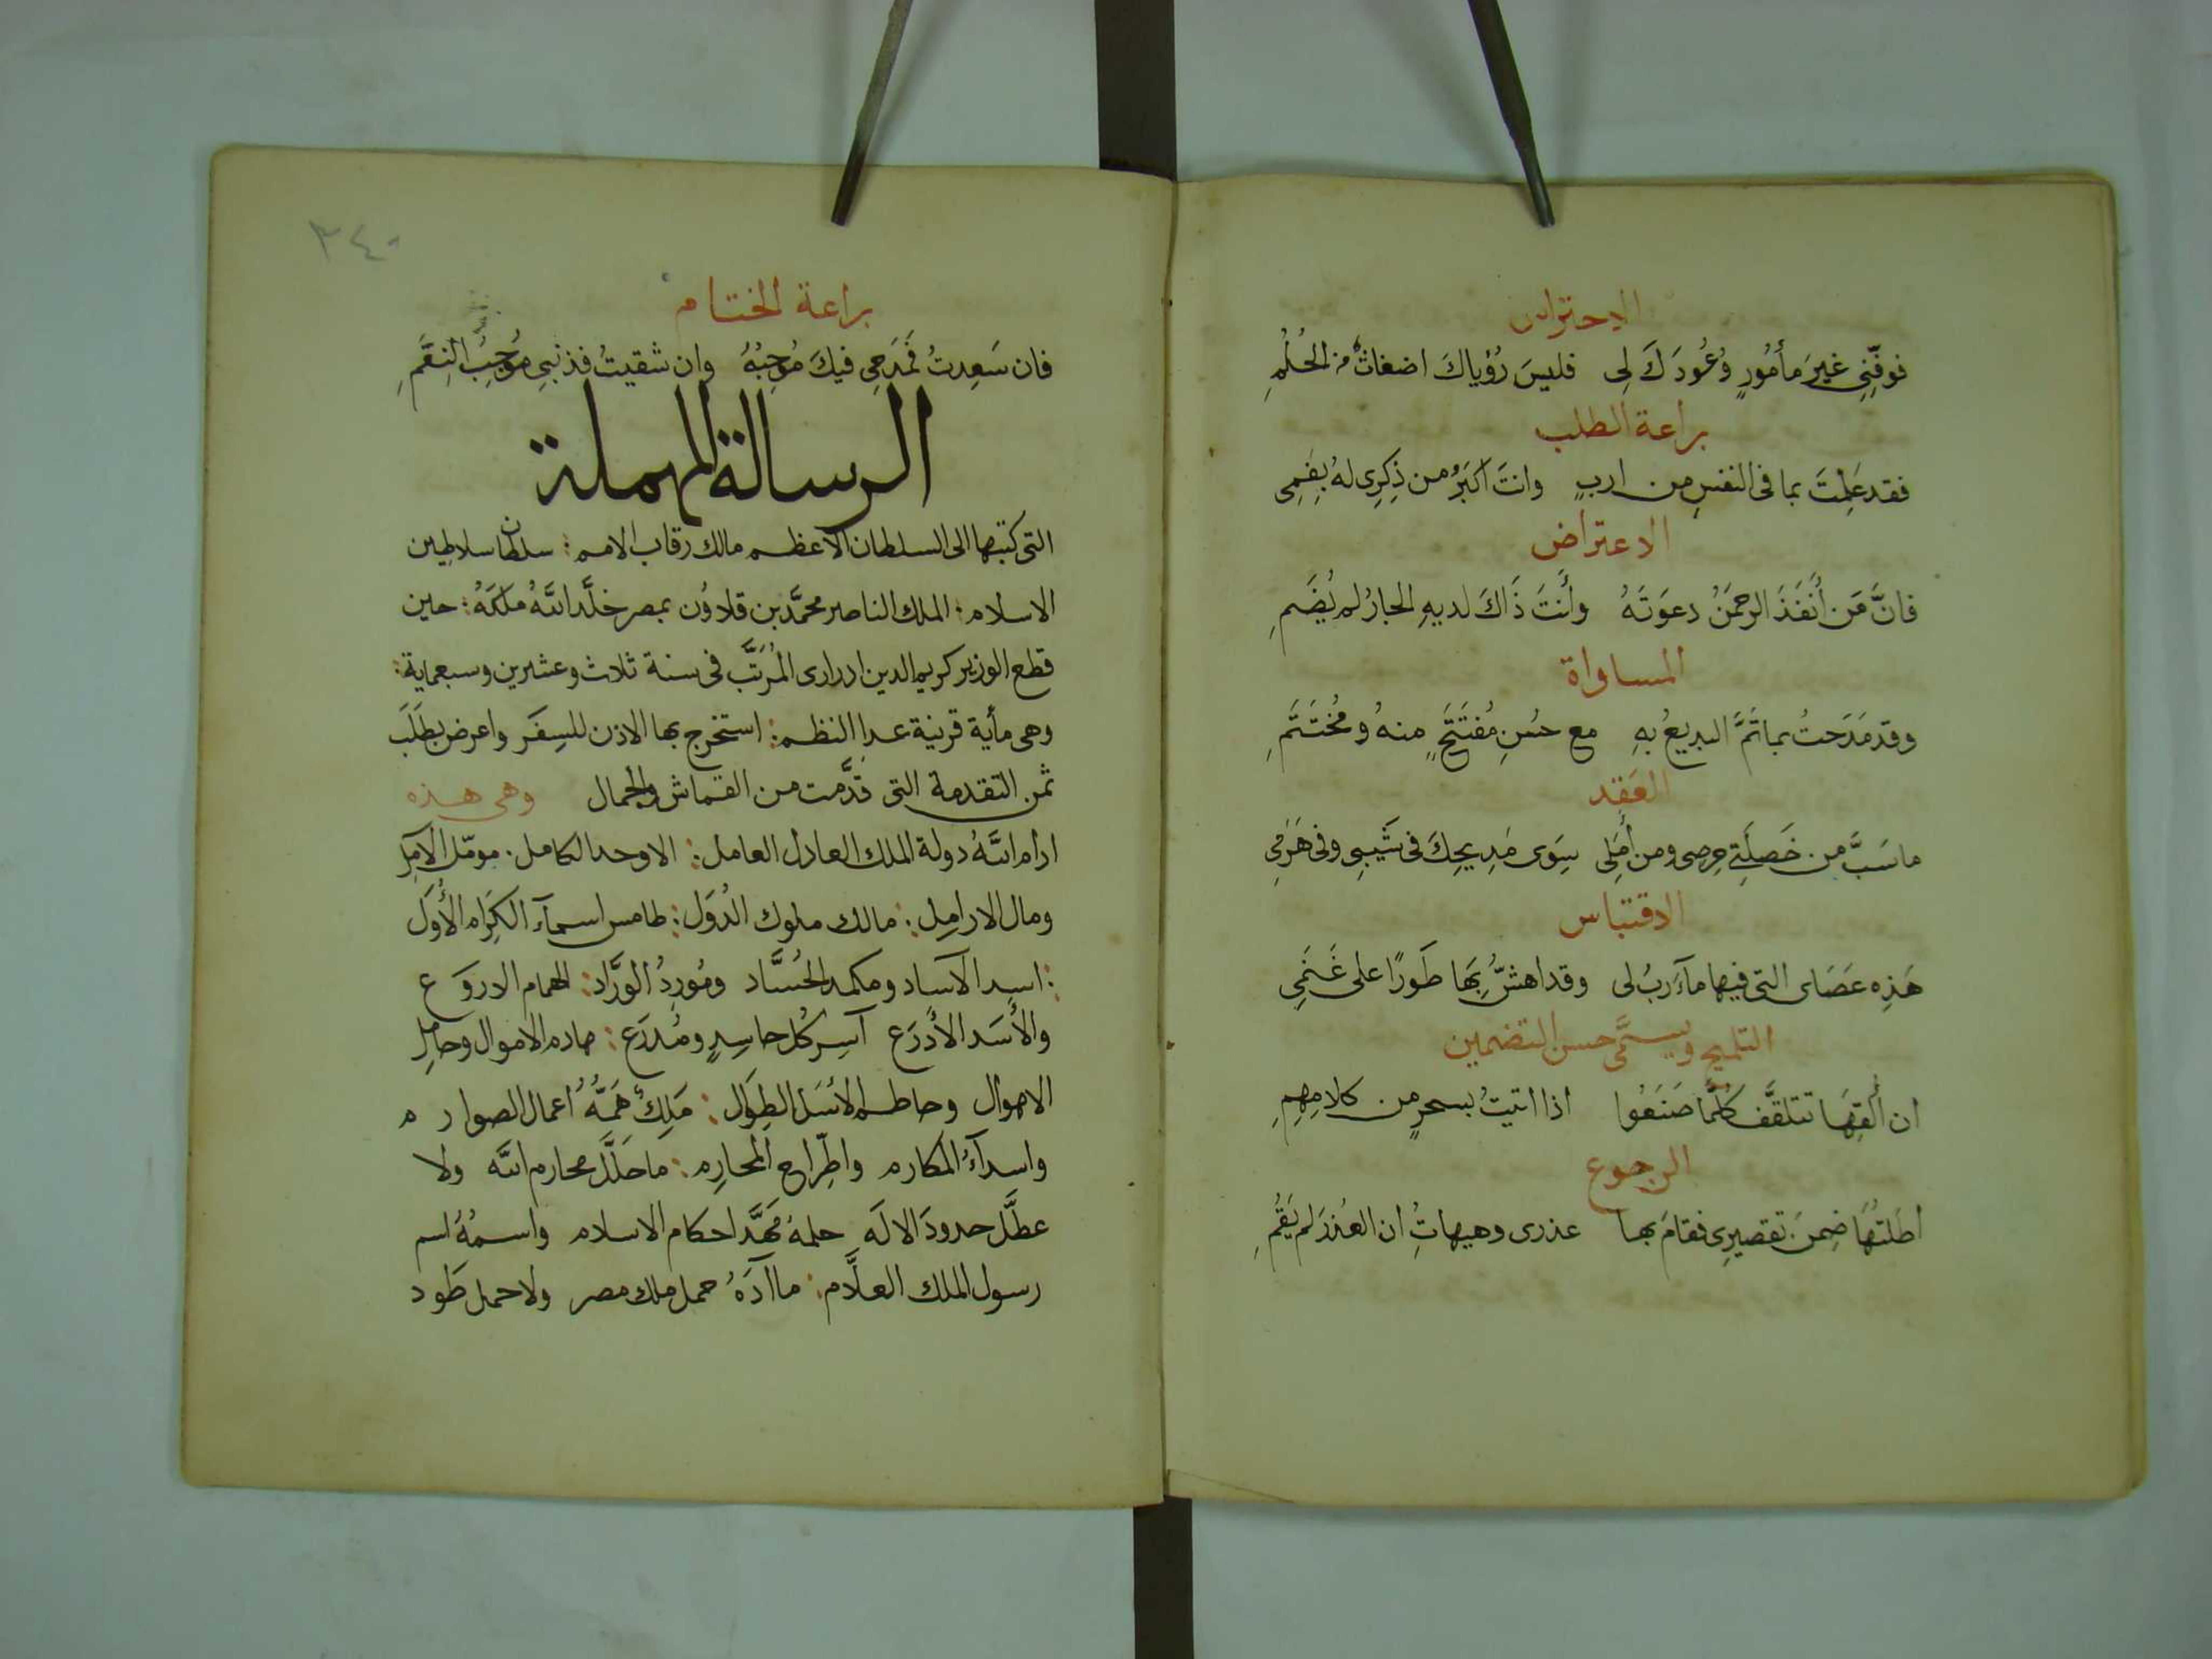 الاحتراس
فوفِّنِى غيرَ مأمُورٍ وُعُودَكَ لِى فليسَ رُؤياكَ اضغاثٌ من الحُلُمِ
براعة الطلب
فقد عَلِمْتَ بما فى النفسِ من اربٍ وانتَ اكبَرُ من ذِكرِى لهُ بِفَمِى
الاعتراض
فانَّ مَن أنفَذَ الرحمَنُ دعوَتَهُ وأنتَ ذَاكَ لديهِ الجارُ لم يُضَمِ
المساواة
وقد مَدَحتُ بما تَمَّ البديعُ بهِ مع حسُنِ مُفتَتَحٍ منهُ ومُختَتَمِ
العَقد
ما شَبَّ من خَصلَتِى حِرصى ومن أمَلِى سِوَى مَدِيحِكَ فى شَيبِى وفى هَرَمِى
الاقتباس
هَذِه عَصَاىَ التى فيها مآرِبُ لى وقد اهشّ بِهَا طَورًا على غَنَمِى
التلميح ويسمَّى حسن التضمين
ان ألقِهَا تتلقَّف كلَّمَا صَنَعُوا اذا اتيتُ بسحرٍ من كلامِهِمِ
الرجوع
اطَلتُهَا ضِمنَ تقصيرِى فقامَ بها عذرى وهيهاتِ ان العُذرَ لم يَقُمِ
٢٤٠
براعة الختام
فان سَعِدتُ فمَدَحِى فيكَ مُوجِبُهُ وان شقيتُ فذنبِى مُوجِبُ النِقَمِ
الرسالة المهملة
التى كتبتها الى السلطان الاعظم مالك رقاب الامم سلطان سلاطين
الاسلام الملك الناصر محمَّد بن قلاوُن بمصر خلَّد اللهُ ملكَهُ حين
قطع الوزير كريم الدين ادرارى المُرَتَّب فى سنة ثلاث وعشرين وسبعماية
وهى مأية قرنية عدا النظم استخرج بها الاذن للسِفَر واعرض بطَلَب
ثمن التقدمة التى قدَّمت من القماش والجمال وهى هذه
ادام اللهُ دولة الملك العادل العامل الاوحد الكامل مومّل الآمِل
ومال الارامِل مالك ملوك الدُوَل طامس اسمآء الكِرَام الأُوَل
اسد الآساد ومكمد الحُسَّاد ومُورِدُ الوُرَّاد الهمام الاروَع
والأسَد الأدرَع آسِر كُل حاسِدٍ ومُدرَع هادم الاموال وحامِل
الاهوال وحاطم الاسَل الطِوَال مَلِكٌ هَمُّهُ أعمال الصوارم
واسدآءُ المكارم واطِّراح المحارِم ما حَلَّلَ محارم الله ولا
عطَّل حدودَ الالَه حلمهُ مَهَّد احكام الاسلام واسمُهُ اسم
رسول الملك العلَّام ما آدَهُ حمل ملك مصر ولا حمل طَود